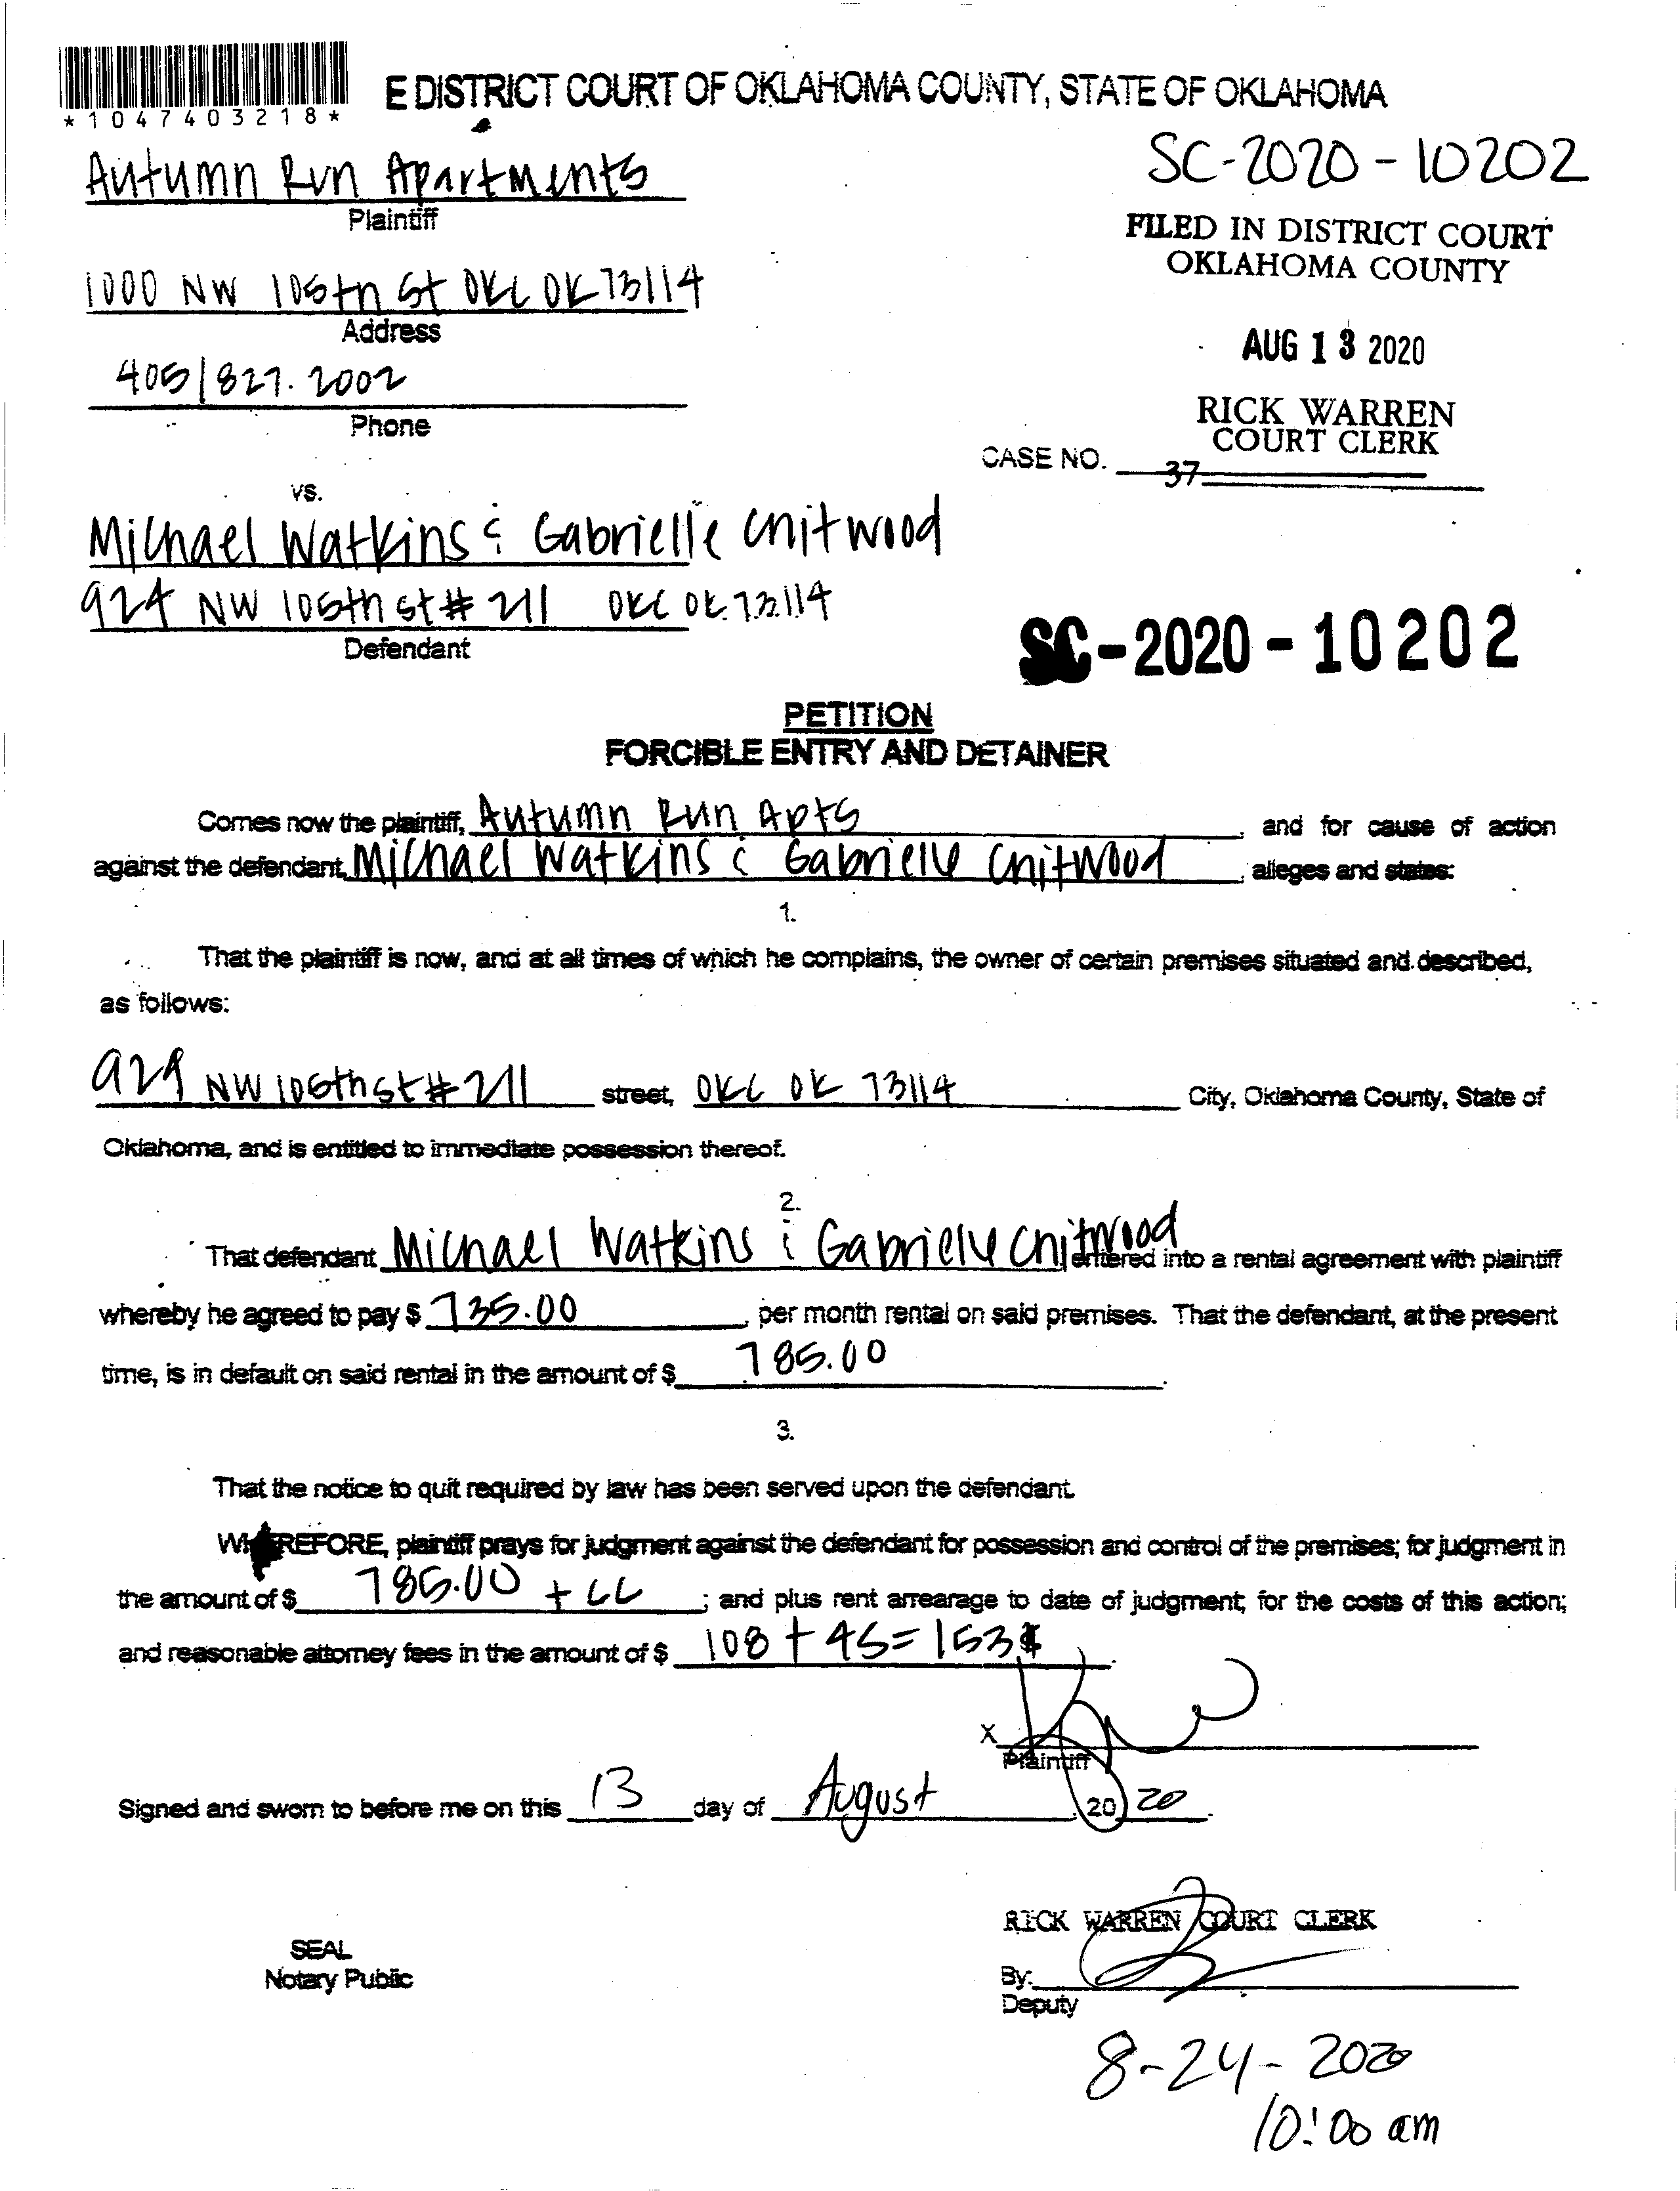 *1047403218*
E DISTRICT COURT OF OKLAHOMA COUNTY, STATE OF OKLAHOMA
Autumn Run Apartments
Plaintiff
SC-2020-10202
FILED IN DISTRICT COURT
OKLAHOMA COUNTY
1000 NW 105th St OKC OK 73114
Address
AUG 13 2020
405/827.2002
Phone
RICK WARREN
COURT CLERK
CASE NO. 37
vs.
Michael Watkins & Gabrielle Chitwood
924 NW 105th st # 211 OKC OK 73114
Defendant
SC-2020-10202
PETITION
FORCIBLE ENTRY AND DETAINER
Comes now the plaintiff, Autumn Run Apts, and for cause of action
against the defendant, Michael Watkins & Gabrielle Chitwood, alleges and states:
1.
That the plaintiff is now, and at all times of which he complains, the owner of certain premises situated and described,
as follows:
924 NW 105th st # 211 street, OKC OK 73114 City, Oklahoma County, State of
Oklahoma, and is entitled to immediate possession thereof.
2.
That defendant Michael Watkins & Gabrielle Chitwood entered into a rental agreement with plaintiff
whereby he agreed to pay $ 735.00, per month rental on said premises. That the defendant, at the present
time, is in default on said rental in the amount of $ 785.00.
3.
That the notice to quit required by law has been served upon the defendant.
WHEREFORE, plaintiff prays for judgment against the defendant for possession and control of the premises; for judgment in
the amount of $ 785.00 + CC; and plus rent arrearage to date of judgment; for the costs of this action;
and reasonable attorney fees in the amount of $ 108 + 45 = 153 $.
X
Plaintiff
Signed and sworn to before me on this 13 day of August, 2020.
RICK WARREN COURT CLERK
SEAL
Notary Public
By:
Deputy
8-24-2020
10:00 am